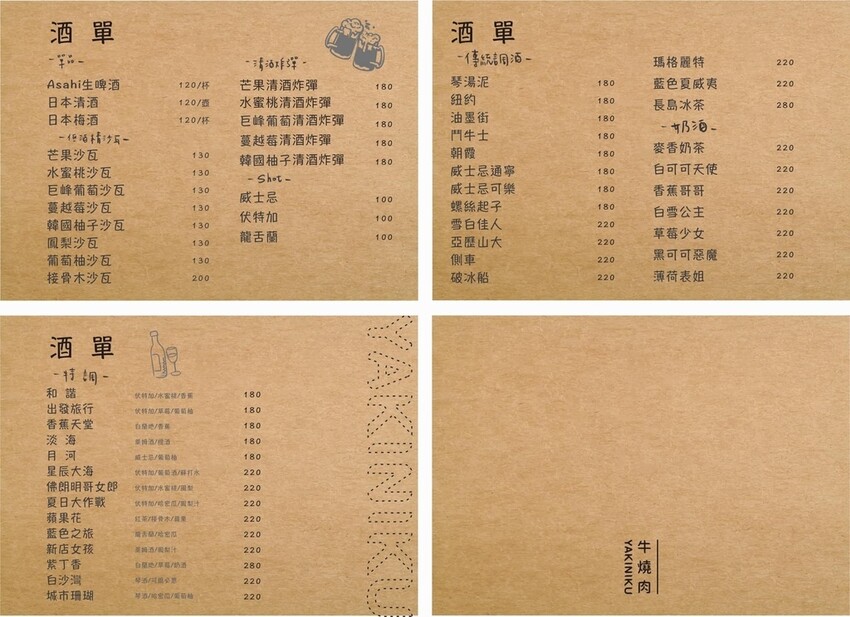 酒 單
-單品-
Asahi生啤酒 120/杯
日本清酒 120/壺
日本梅酒 120/杯
-低酒精沙瓦-
芒果沙瓦 130
水蜜桃沙瓦 130
巨峰葡萄沙瓦 130
蔓越莓沙瓦 130
韓國柚子沙瓦 130
鳳梨沙瓦 130
葡萄柚沙瓦 130
接骨木沙瓦 200
-清酒炸彈-
芒果清酒炸彈 180
水蜜桃清酒炸彈 180
巨峰葡萄清酒炸彈 180
蔓越莓清酒炸彈 180
韓國柚子清酒炸彈 180
-Shot-
威士忌 100
伏特加 100
龍舌蘭 100
酒 單
-傳統調酒-
琴湯泥 180
紐約 180
油墨街 180
鬥牛士 180
朝霞 180
威士忌通寧 180
威士忌可樂 180
螺絲起子 180
雪白佳人 220
亞歷山大 220
側車 220
破冰船 220
瑪格麗特 220
藍色夏威夷 220
長島冰茶 280
-奶酒-
麥香奶茶 220
白可可天使 220
香蕉哥哥 220
白雪公主 220
草莓少女 220
黑可可惡魔 220
薄荷表姐 220
酒 單
-特調-
和 諧 伏特加/水蜜桃/香蕉 180
出發旅行 伏特加/草莓/葡萄柚 180
香蕉天堂 白蘭地/香蕉 180
淡 海 180
月 河 威士忌/葡萄柚 180
星辰大海 伏特加/葡萄酒/蘇打水 220
佛朗明哥女郎 伏特加/水蜜桃/鳳梨 220
夏日大作戰 伏特加/哈密瓜/鳳梨汁 220
蘋果花 紅茶/接骨木/蘋果 220
藍色之旅 龍舌蘭/哈密瓜 220
新店女孩 蘭姆酒/鳳梨汁 220
紫丁香 白蘭地/草莓/奶酒 280
白沙灣 220
城市珊瑚 琴酒/哈密瓜/葡萄柚 220
YAKINIKU
牛燒肉
YAKINIKU